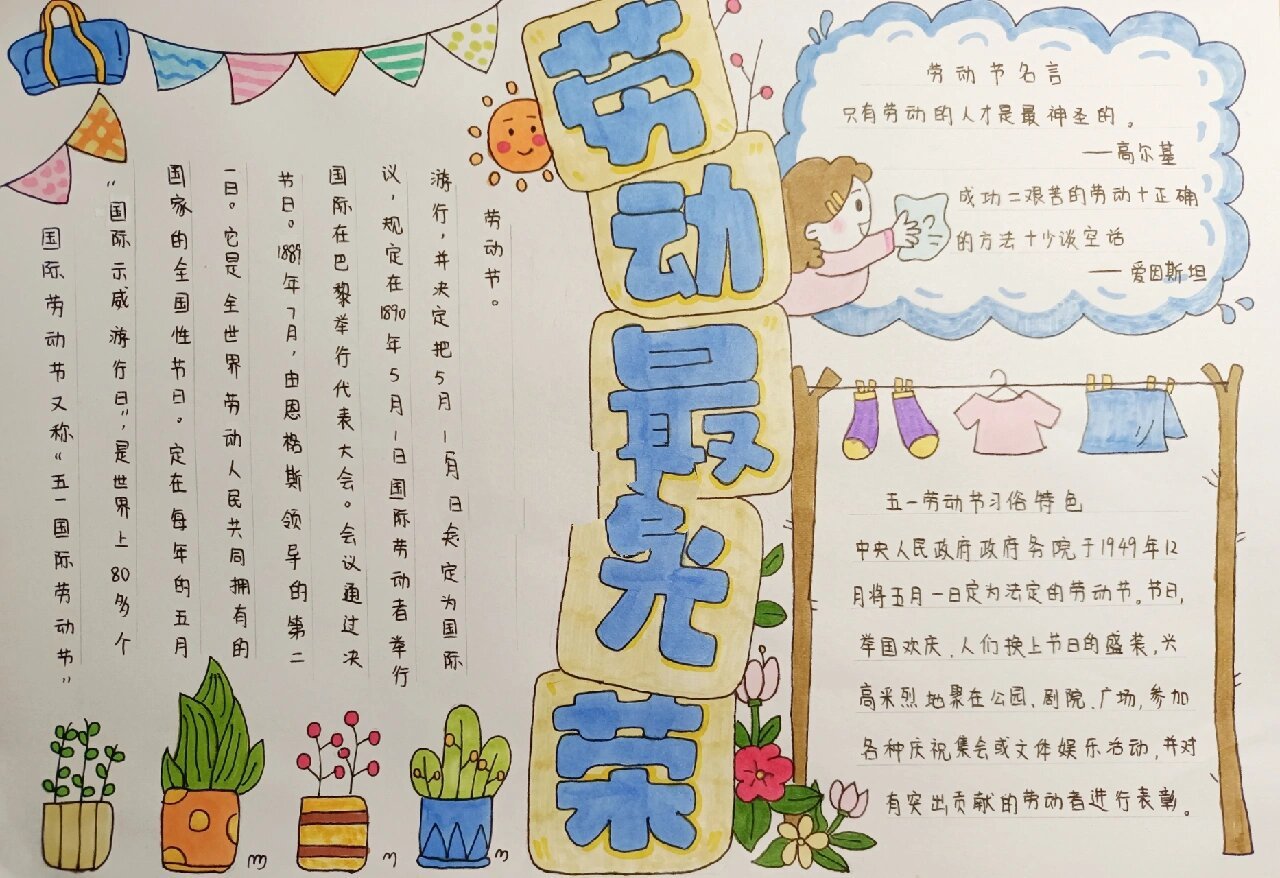 劳动最光荣
国际劳动节又称“五一国际劳动节”
“国际示威游行日”，是世界上80多个
国家的全国性节日。定在每年的五月
一日。它是全世界劳动人民共同拥有的
节日。1889年7月，由恩格斯领导的第二
国际在巴黎举行代表大会。会议通过决
议，规定在1890年5月1日国际劳动者举行
游行，并决定把5月 日 定为国际
劳动节。
劳动节名言
只有劳动的人才是最神圣的。
——高尔基
成功=艰苦的劳动+正确
的方法+少谈空话
——爱因斯坦
五一劳动节习俗特色
中央人民政府政府务院于1949年12
月将五月一日定为法定的劳动节。节日，
举国欢庆、人们换上节日的盛装，兴
高采烈地聚在公园、剧院、广场，参加
各种庆祝集会或文体娱乐活动，并对
有突出贡献的劳动者进行表彰。